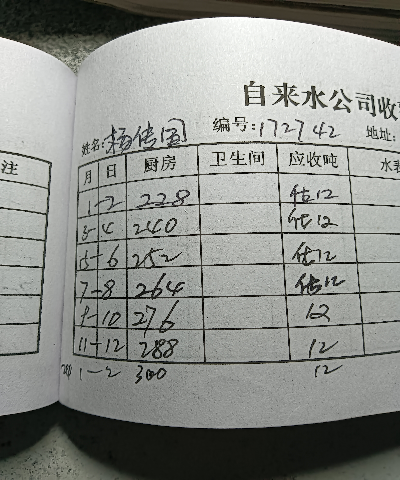 自来水公司收
姓名:杨传国 编号:172742 地址:
注 月 日 厨房 卫生间 应收吨 水表
1-2 228 估12
3-4 240 估12
5-6 252 估12
7-8 264 估12
9-10 276 12
11-12 288 12
1-2 300 12